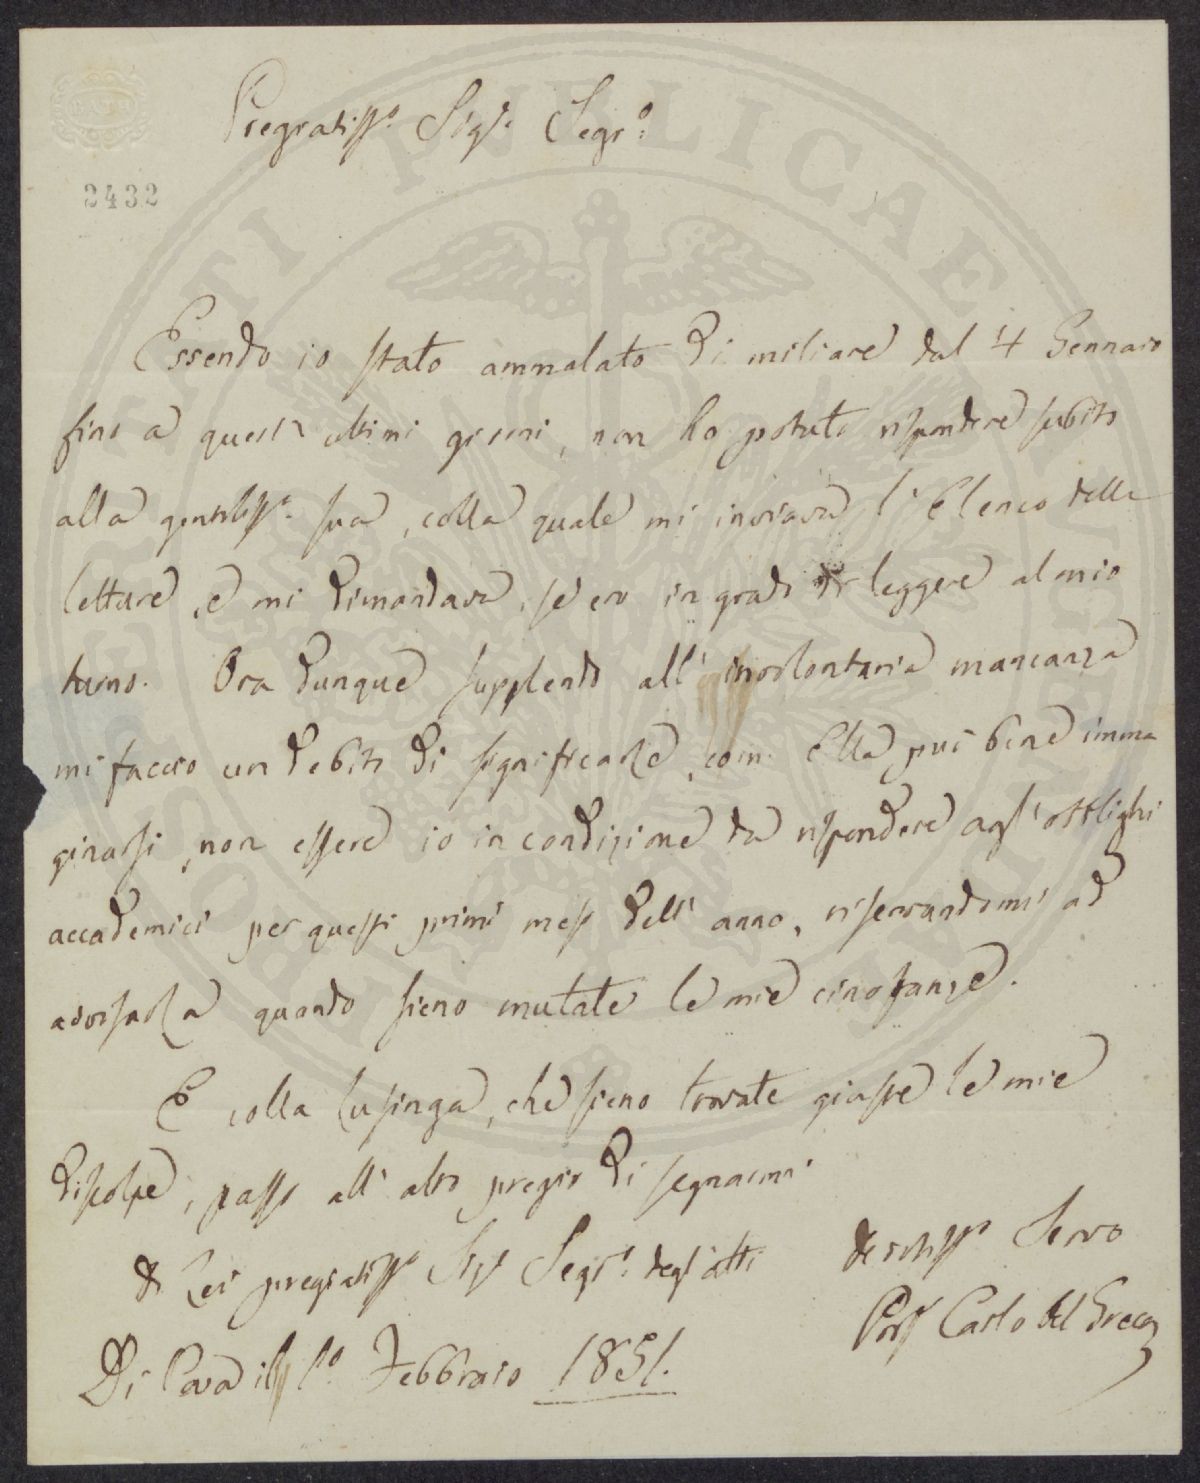 BATH
2432
Pregiatiss.º Sig.r Segr.º
Essendo io stato ammalato di miliare dal 4 Gennaio
fino a questi ultimi giorni, non ho potuto rispondere subito
alla gentiliss.ª sua, colla quale mi inviava l'Elenco delle
letture, e mi dimandava, se ero in grado di leggere al mio
turno. Ora dunque supplendo all'involontaria mancanza
mi faccio un debito di significarle, com' Ella può bene imma
ginarsi, non essere io in condizione da rispondere agl'obblighi
accademici per questi primi mesi dell'anno, riserbandomi ad
avvisarla quando sieno mutate le mie circostanze.
E colla lusinga, che sieno trovate giuste le mie
discolpe, passo all'alto pregio di segnarmi
di Lei pregiatiss.º Sig.r Segr.º degl'atti
devotiss.º Servo
Prof. Carlo del Greco
Di Casa il 1º Febbraio 1851.